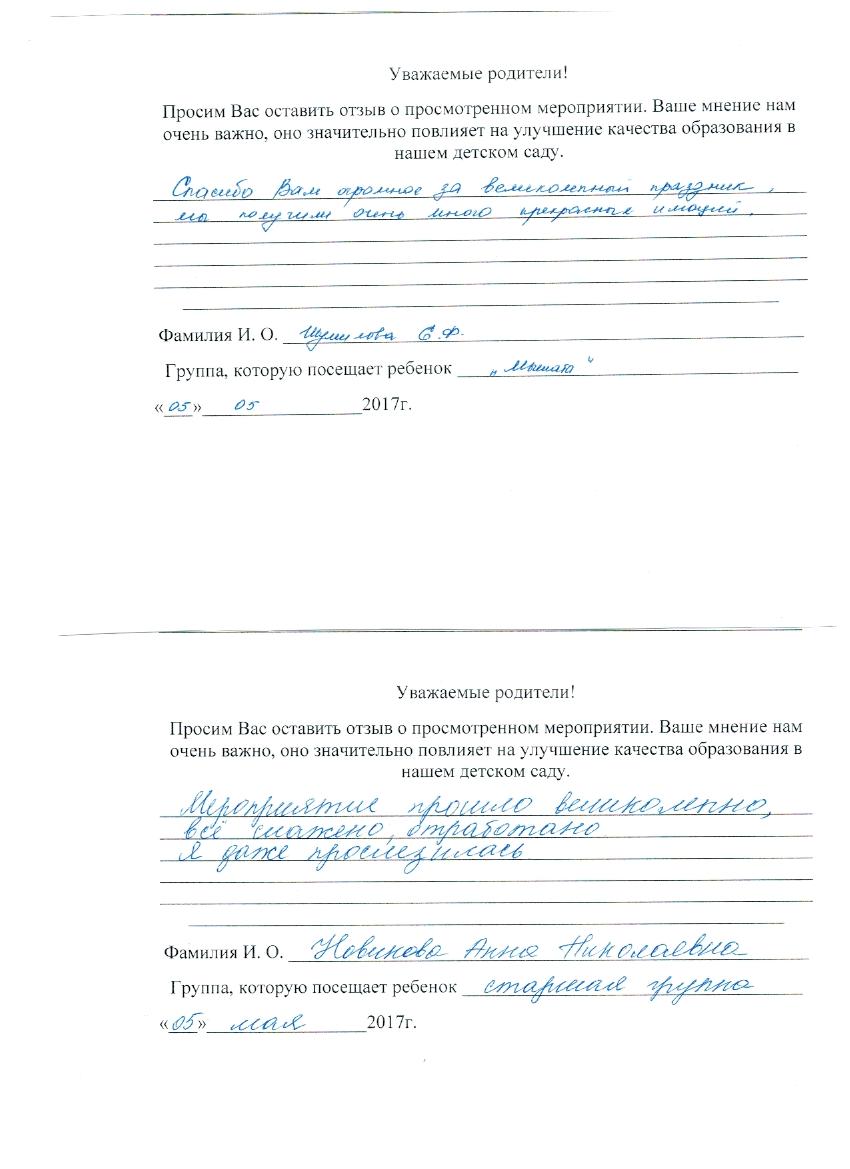 Уважаемые родители!
Просим Вас оставить отзыв о просмотренном мероприятии. Ваше мнение нам
очень важно, оно значительно повлияет на улучшение качества образования в
нашем детском саду.
Спасибо Вам огромное за великолепный праздник,
мы получили очень много прекрасных имоций.
Фамилия И. О. Шумилова Е.Ф.
Группа, которую посещает ребенок
«05» 05 2017г.
Уважаемые родители!
Просим Вас оставить отзыв о просмотренном мероприятии. Ваше мнение нам
очень важно, оно значительно повлияет на улучшение качества образования в
нашем детском саду.
Мероприятие прошло великолепно,
всё слажено, отработано
Я даже прослезилась
Фамилия И. О. Новикова Анна Николаевна
Группа, которую посещает ребенок старшая группа
«05» мая 2017г.